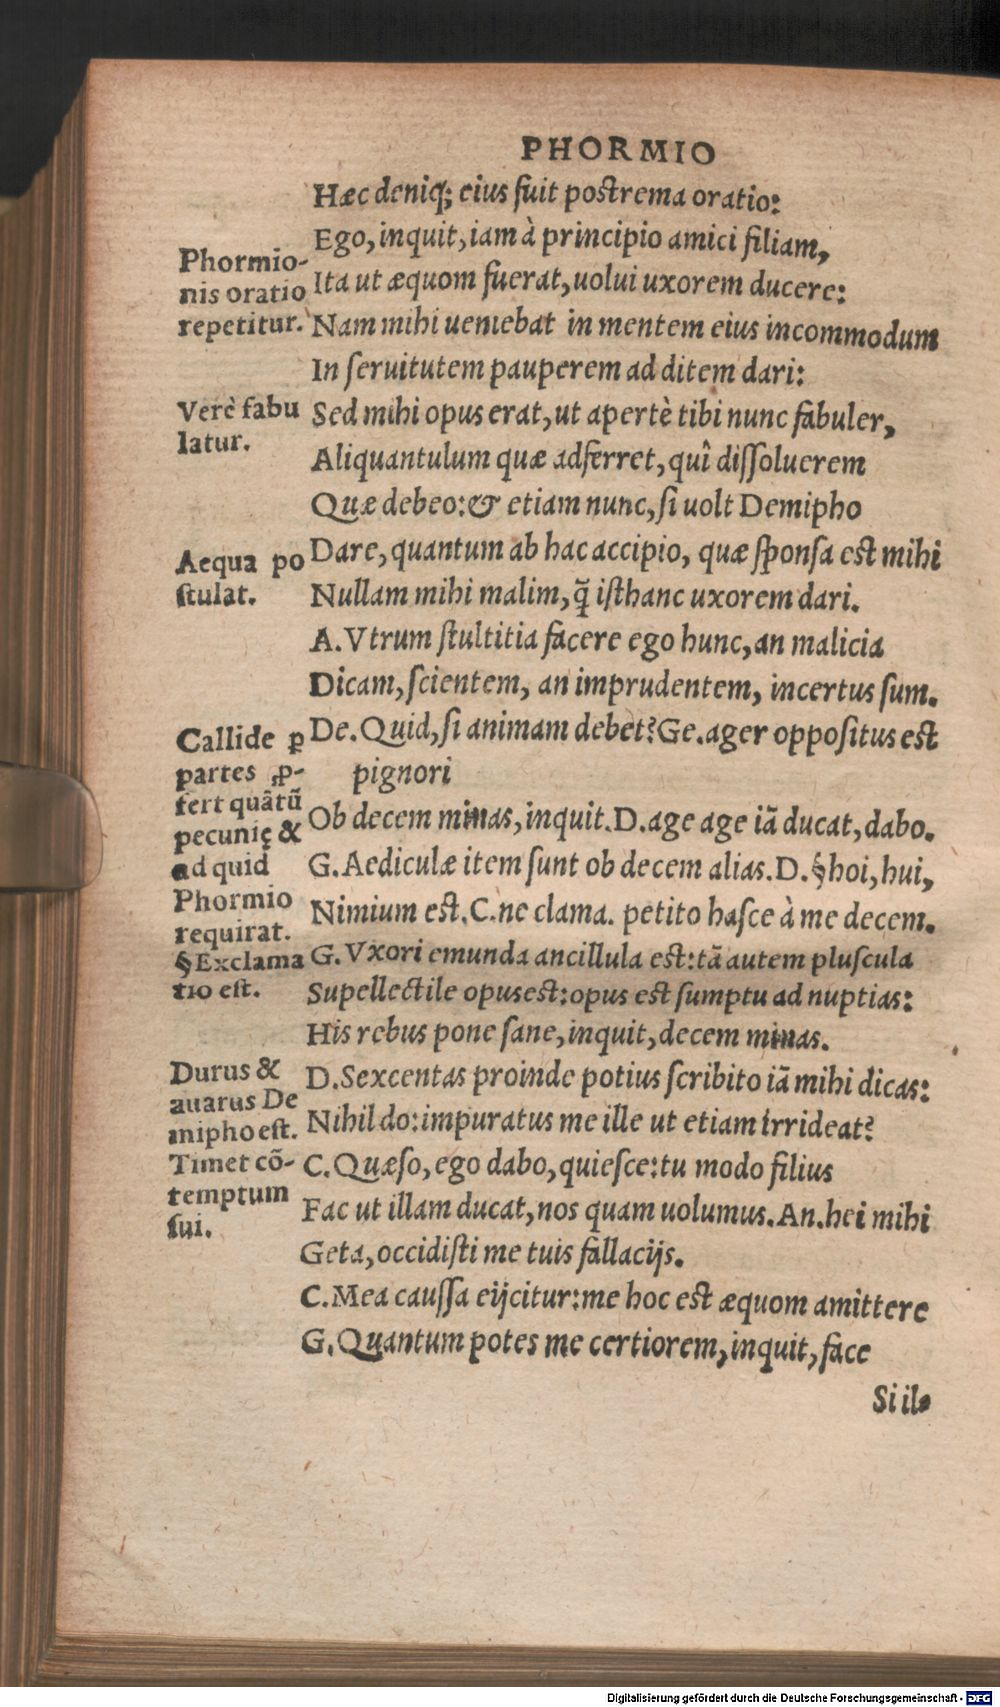 PHORMIO
Hæc deniq; eius ſuit poſtrema oratio:
Ego, inquit, iam à principio amici filiam,
Ita ut æquom fuerat, uolui uxorem ducere:
Nam mihi ueniebat in mentem eius incommodum
In ſeruitutem pauperem ad ditem dari:
Sed mihi opus erat, ut apertè tibi nunc fabuler,
Aliquantulum quæ adferret, quî diſſoluerem
Quæ debeo: & etiam nunc, ſi uolt Demipho
Dare, quantum ab hac accipio, quæ ſponſa eſt mihi
Nullam mihi malim, q̃ iſthanc uxorem dari.
A. Vtrum ſtultitia facere ego hunc, an malicia
Dicam, ſcientem, an imprudentem, incertus ſum.
De. Quid, ſi animam debet? Ge. ager oppoſitus eſt
pignori
Ob decem minas, inquit. D. age age iã ducat, dabo.
G. Aediculæ item ſunt ob decem alias. D. §hoi, hui,
Nimium eſt. C. ne clama. petito haſce à me decem.
G. Vxori emunda ancillula eſt: tã autem pluſcula
Supellectile opus eſt: opus eſt ſumptu ad nuptias:
His rebus pone ſane, inquit, decem minas.
D. Sexcentas proinde potius ſcribito iã mihi dicas:
Nihil do: impuratus me ille ut etiam irrideat?
C. Quæſo, ego dabo, quieſce: tu modo filius
Fac ut illam ducat, nos quam uolumus. An. hei mihi
Geta, occidiſti me tuis fallacijs.
C. Mea cauſſa eijcitur: me hoc eſt æquom amittere
G. Quantum potes me certiorem, inquit, face
Si il-
Phormio-
nis oratio
repetitur.
Verè fabu
latur.
Aequa po
ſtulat.
Callide ꝑ
partes ꝓ-
fert quãtũ
pecunię &
ad quid
Phormio
requirat.
§ Exclama
tio eſt.
Durus &
auarus De
mipho eſt.
Timet cõ-
temptum
ſui.
Digitalisierung gefördert durch die Deutsche Forschungsgemeinschaft - DFG